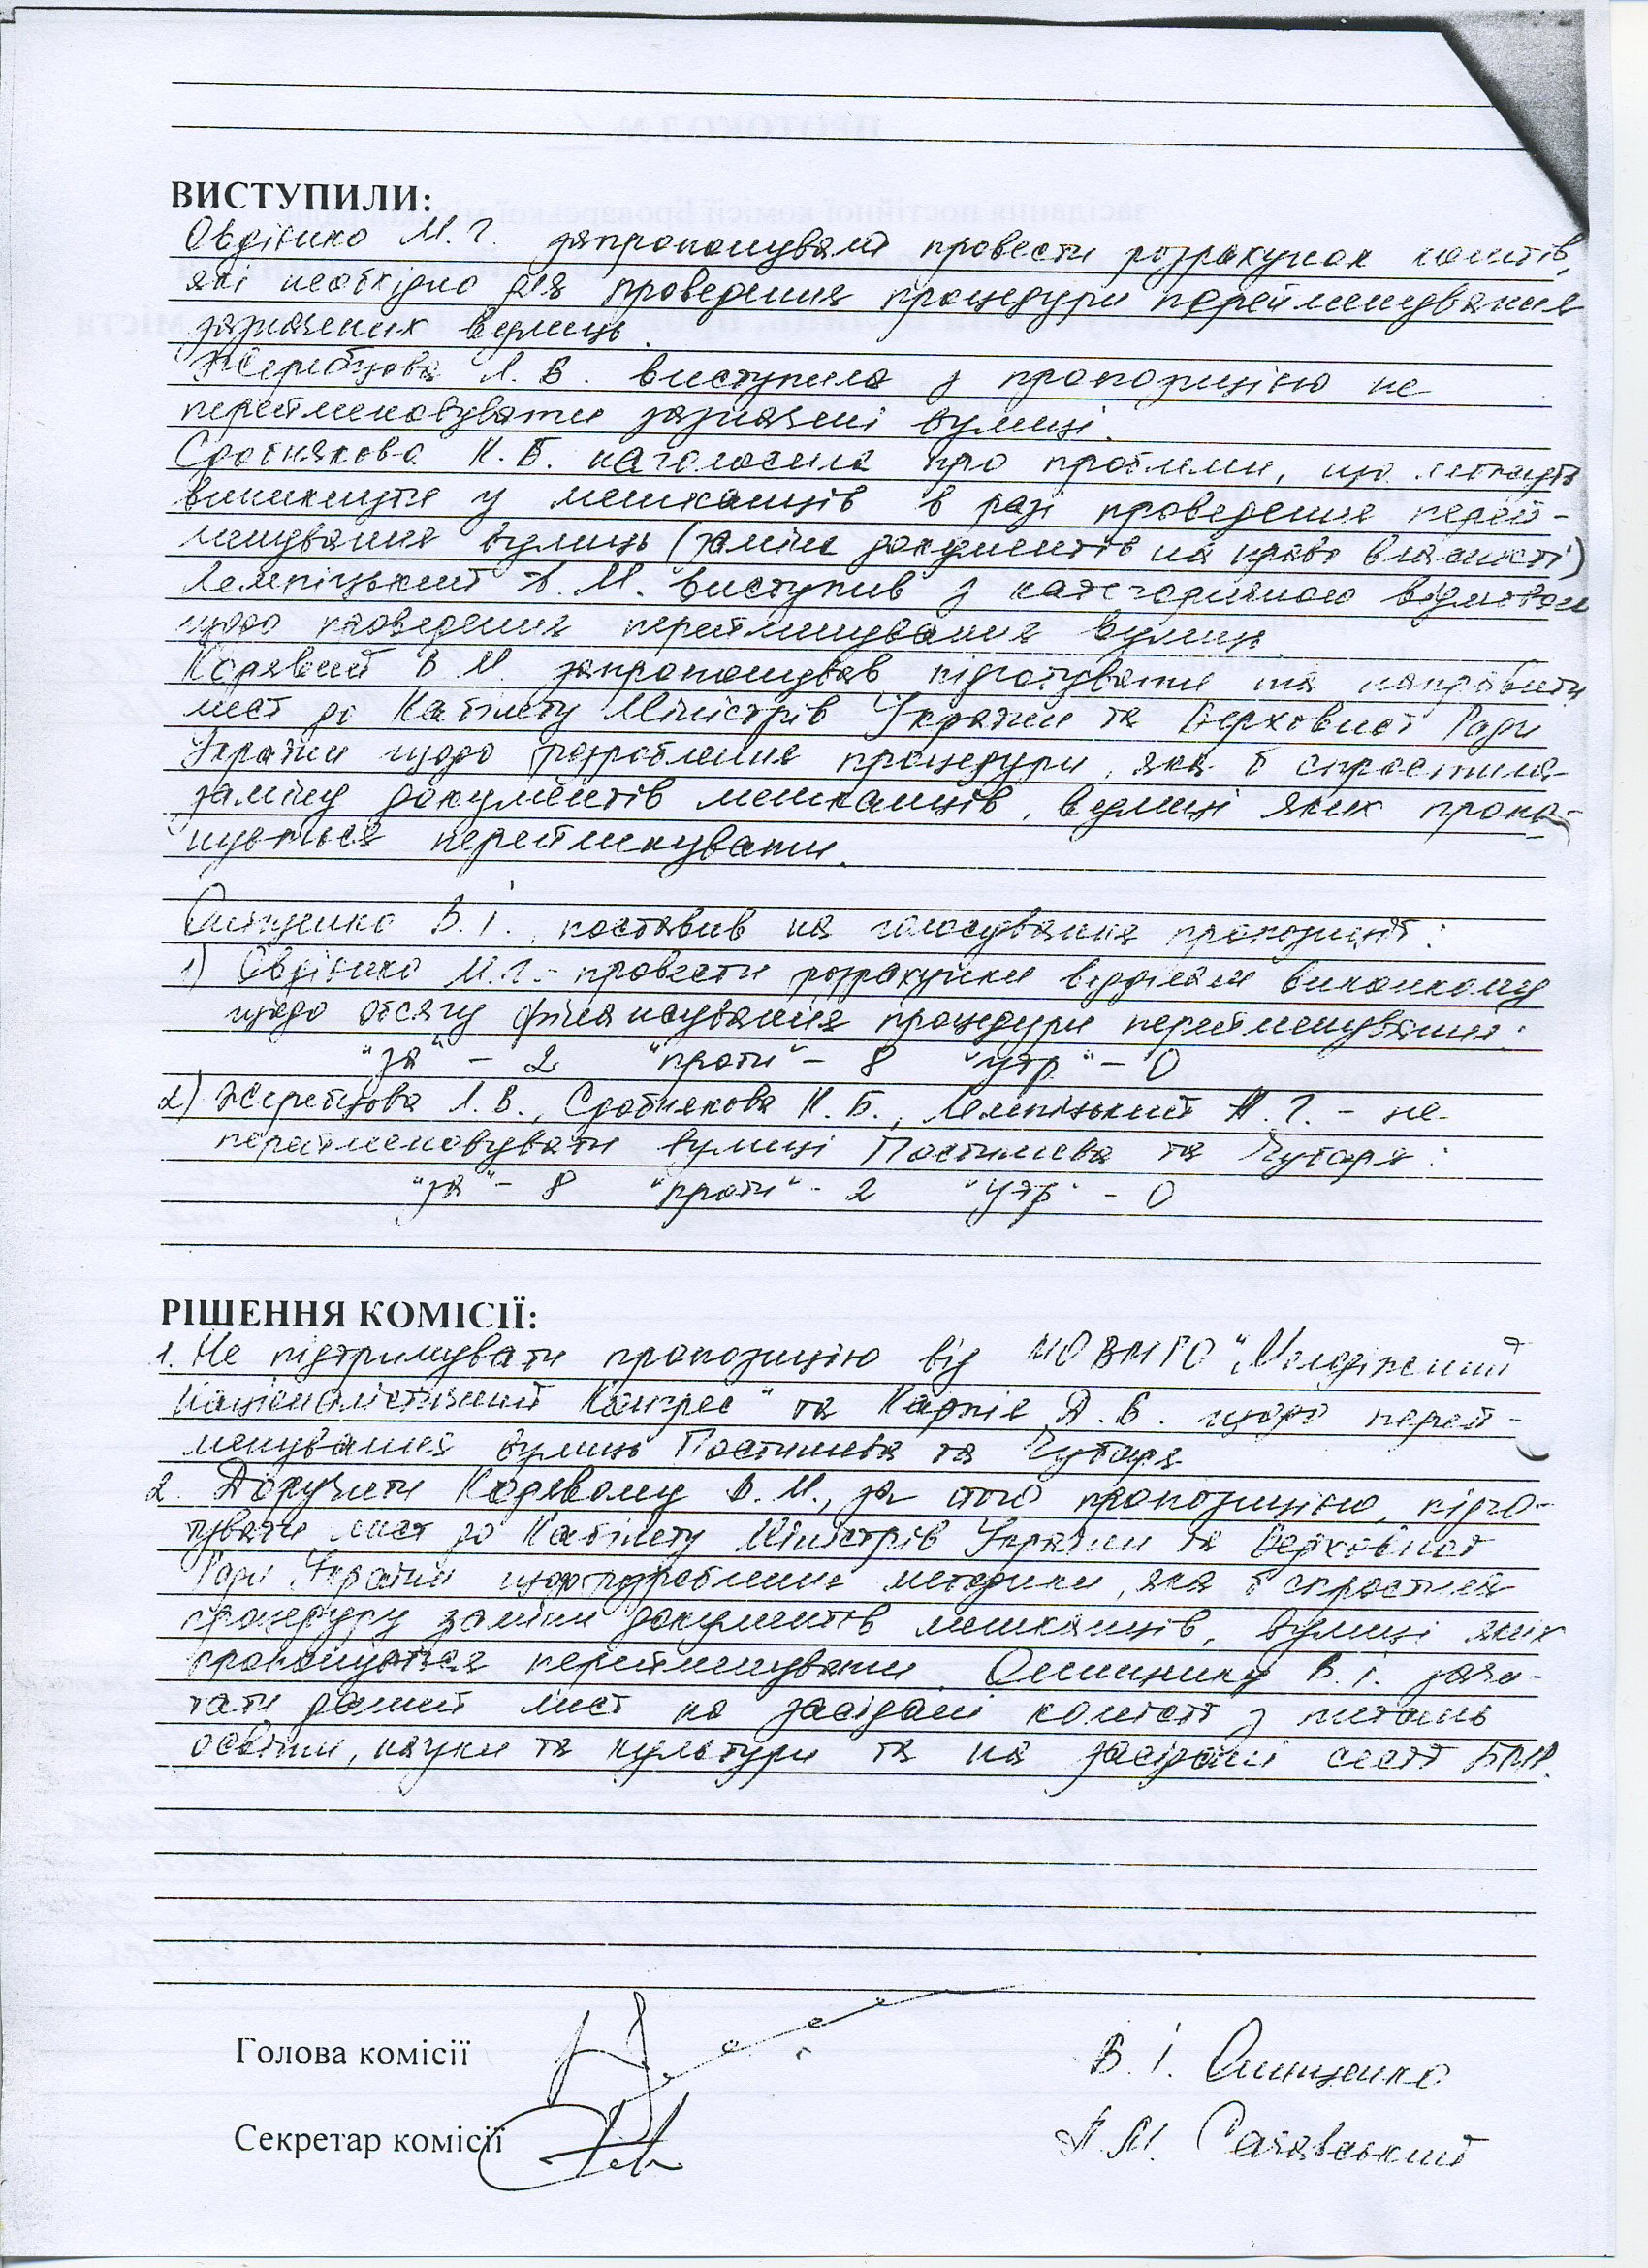 ВИСТУПИЛИ:
Овдієнко М. Г. запропонували провести розрахунок коштів,
які необхідно для проведення процедури перейменування
зазначених вулиць.
Жеребцова Л. В. виступила з пропозицією не
перейменовувати зазначені вулиці.
Сробнякова К. Б. наголосила про проблеми, що можуть
виникнути у мешканців в разі проведення перей-
менування вулиць (заміна документів на право власності)
Лемпіцький М. виступив з категоричною відмовою
щодо проведення перейменування вулиць.
Корявий В. М. запропонував підготувати та направити
лист до Кабінету Міністрів України та Верховної Ради
України щодо розроблення процедури, яка б спростила
заміну документів мешканців, вулиці яких пропо-
нується перейменувати.
Онищенко В. І. поставив на голосування пропозиції:
1) Овдієнко М.Г. - провести розрахунки відділам виконкому
щодо обсягу фінансування процедури перейменування:
"за" - 2 "проти" - 8 "утр" - 0
2) Жеребцова Л. В., Сробнякова К. Б., Лемпіцький Г. - не
перейменовувати вулиці Постишева та Чубаря:
"за" - 8 "проти" - 2 "утр" - 0
РІШЕННЯ КОМІСІЇ:
1. Не підтримувати пропозицію від "Молодіжний
Націоналістичний Конгрес" та Карпія В. щодо перей-
менування вулиць Постишева та Чубаря
2. Доручити Корявому В. М., за його пропозицією, підго-
тувати лист до Кабінету Міністрів України та Верховної
Ради України щодо розроблення методики, яка б спростила
процедуру заміни документів мешканців, вулиці яких
пропонується перейменувати. Онищенку В. І. зачи-
тати даний лист на засідані комісії з питань
освіти, науки та культури та на засідані сесії БМР.
Голова комісії В. І. Онищенко
Секретар комісії